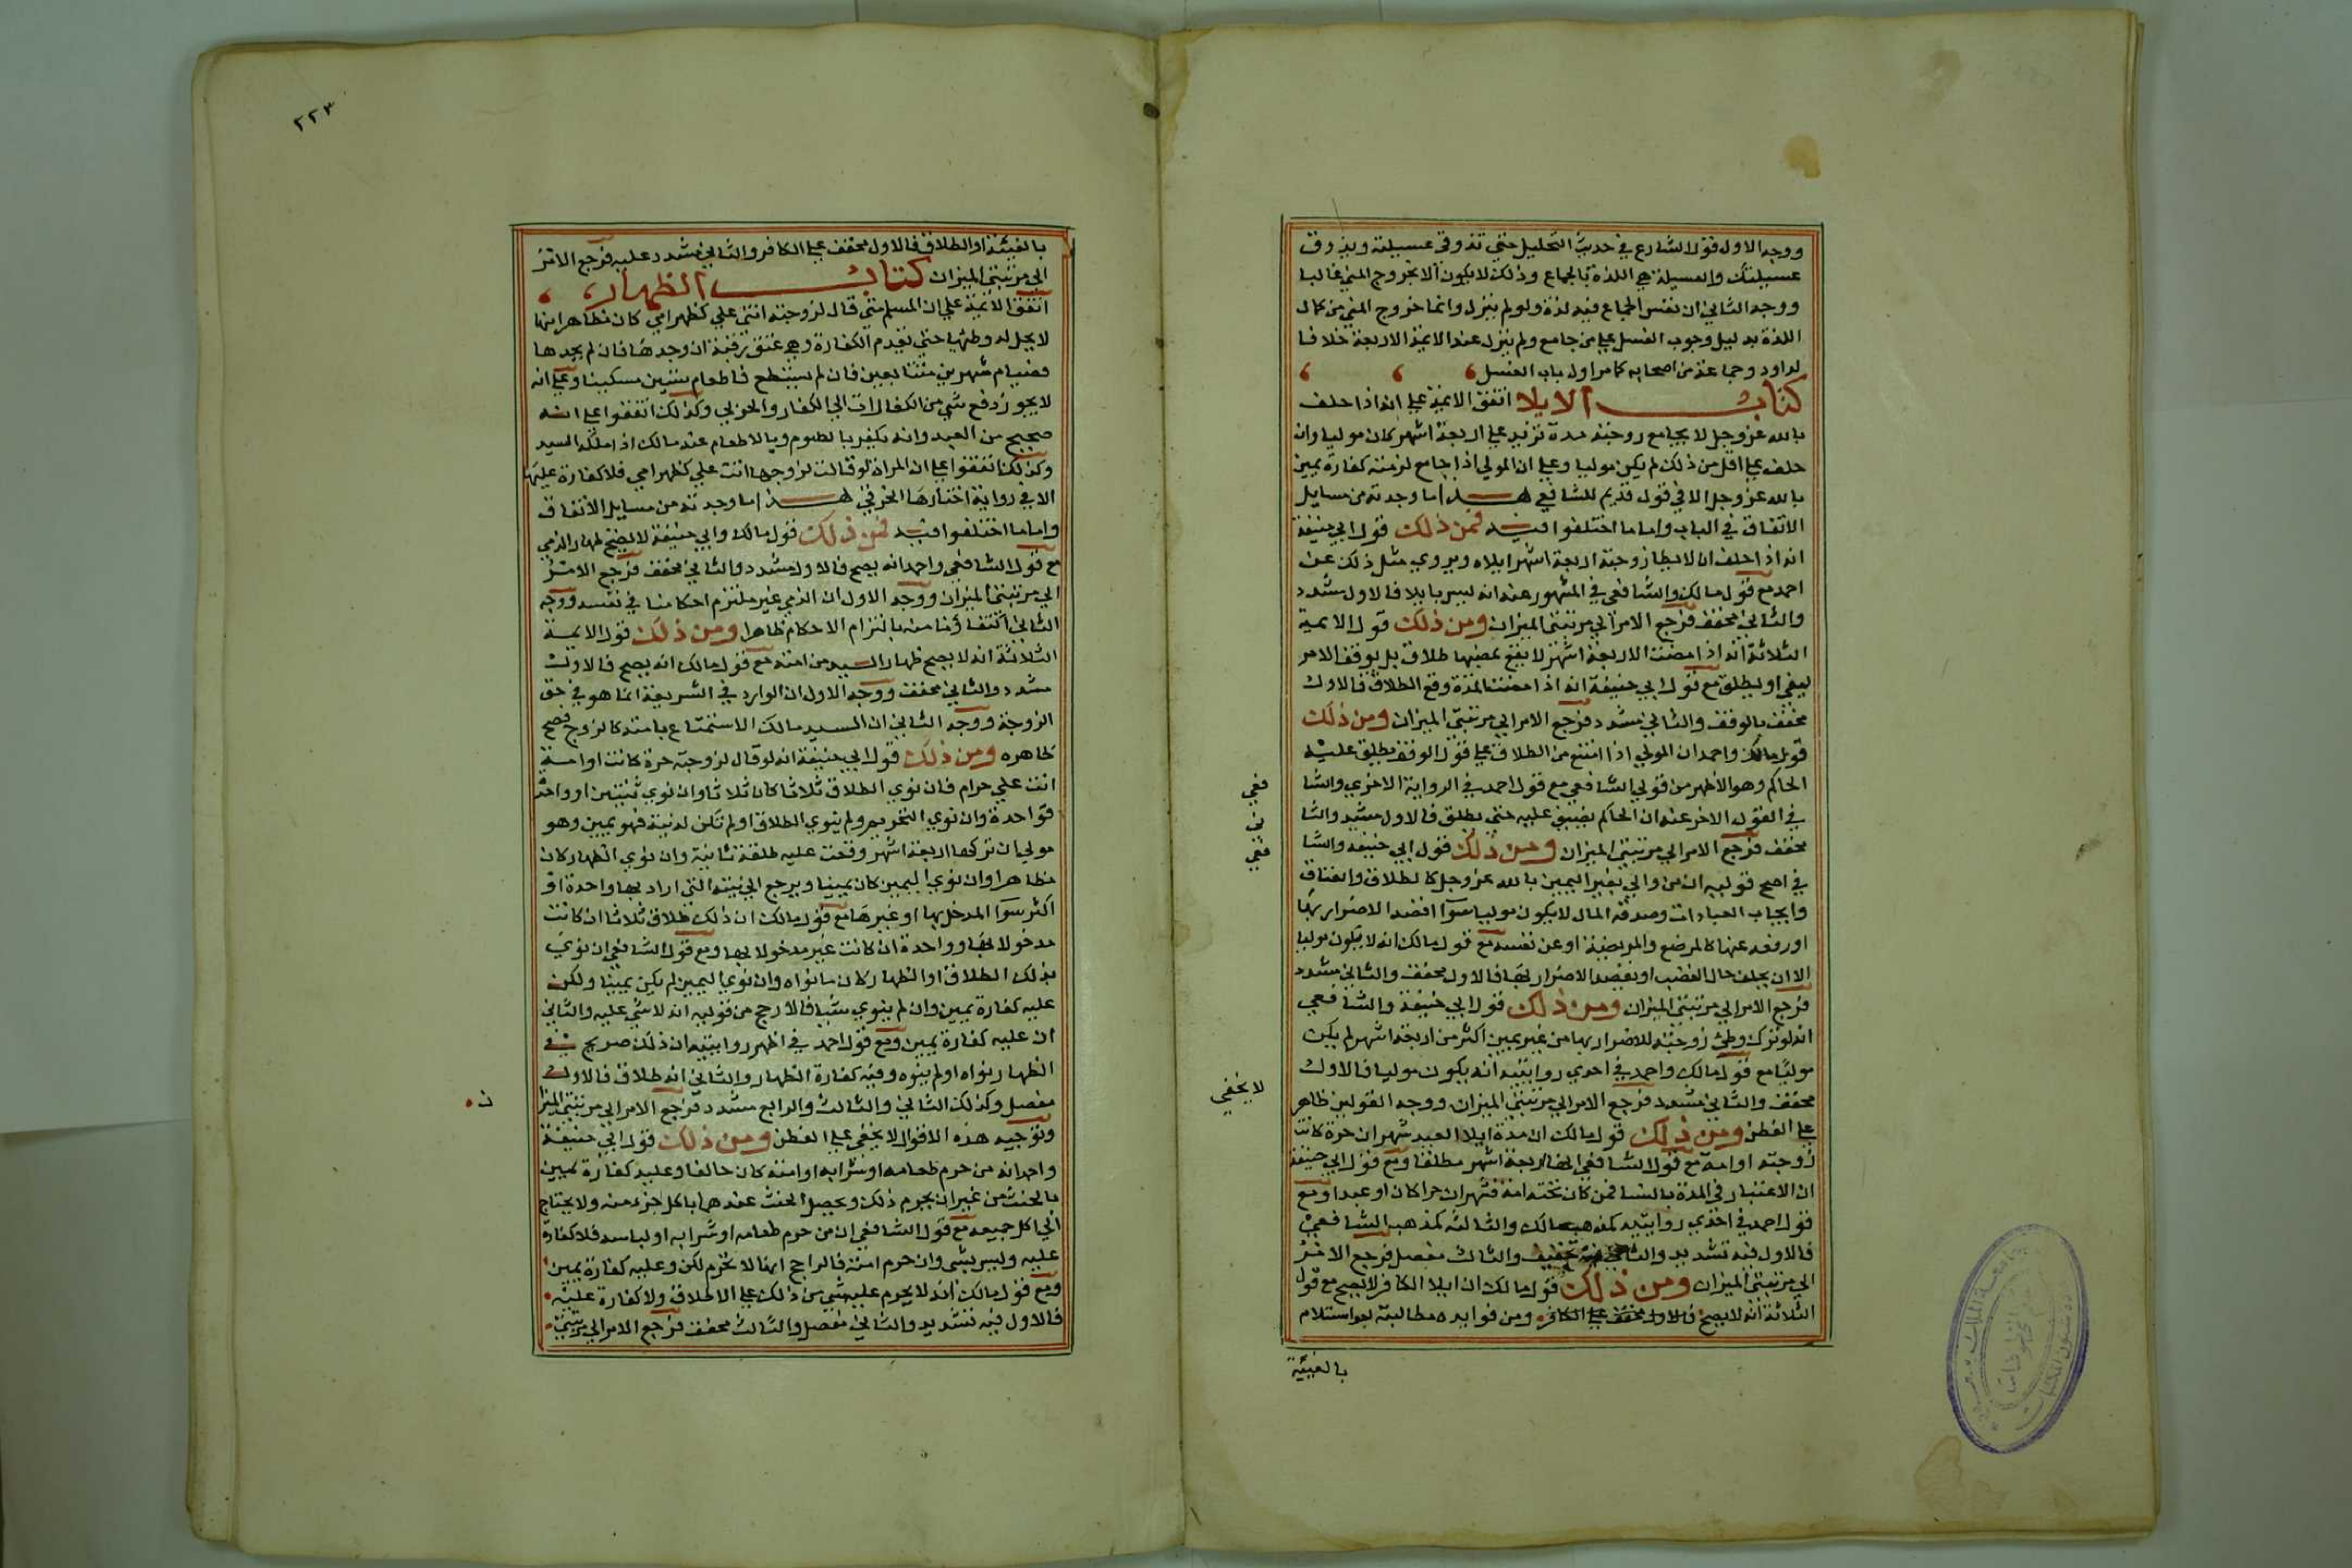 ووجه الاول قول الشارع في حديث التحليل حتى تذوقي عسيلته ويذوق
عسيلتك والعسيلة هي اللذة بالجماع وذلك لا يكون الا بخروج المني غالبا
ووجه الثاني ان نفس الجماع فيه لذة ولو لم ينزل وانما خروج المني من كمال
اللذة بدليل وجوب الغسل علي من جامع ولم ينزل عند الايمة الاربعة خلافا
لداود وجماعة من اصحابه كما مر اول باب الغسل
كتاب الايلا اتفق الايمة علي انه اذا حلف
بالله عز وجل لا يجامع زوجته مدة تزيد علي اربعة اشهر كان موليا وان
حلف علي اقل من ذلك لم يكن موليا وعلي ان المولي اذا جامع لزمته كفارة يمين
بالله عز وجل الا في قول قديم للشافعي هذا ما وجدته من مسايل
الاتفاق في الباب واما ما اختلفوا فيه فمن ذلك قول ابي حنيفة
انه اذا حلف ان لا يطا زوجته اربعة اشهر ايلاء ويروي مثل ذلك عن
احمد مع قول مالك والشافعي في المشهور عنه انه ليس بايلا فالاول مشدد
والثاني مخفف فرجع الامر الي مرتبتي الميزان ومن ذلك قول الايمة
الثلاثة انه اذا مضت الاربعة اشهر لا يقع بمضيها طلاق بل يوقف الامر
ليفي او يطلق مع قول ابي حنيفة انه اذا مضت المدة وقع الطلاق فالاول
مخفف بالوقف والثاني مشدد فرجع الامر الي مرتبتي الميزان ومن ذلك
قول مالك واحمد ان المولي اذا امتنع من الطلاق علي قول الوقف يطلق عليه
الحاكم وهو الاظهر من قولي الشافعي مع قول احمد في الرواية الاخري والشا
فعي
في القول الاخر عنه ان الحاكم يضيق عليه حتى يطلق فالاول مشدد والثا
ني
مخفف فرجع الامر الي مرتبتي الميزان ومن ذلك قول ابي حنيفة والشا
فعي
في اصح قوليه ان من والي بغير اليمين بالله عز وجل كالطلاق والعتاق
وايجاب العبادات وصدقة المال لا يكون موليا سوا اقصد الاضرار بها
او رفعه عنها كالمرضع والمريضة او عن نفسه مع قول مالك انه لا يكون موليا
الا ان يحلف حال الغضب او يقصد الاضرار بها فالاول مخفف والثاني مشدد
فرجع الامر الي مرتبتي الميزان ومن ذلك قول ابي حنيفة والشافعي
انه لو ترك وطي زوجته للاضرار بها من غير يمين اكثر من اربعة اشهر لم يكن
موليا مع قول مالك واحمد في احدي روايتيه انه يكون موليا فالاول
مخفف والثاني مشدد فرجع الامر الي مرتبتي الميزان ووجه القولين ظاهر
لا يخفي
علي الفطن ومن ذلك قول مالك ان مدة ايلا العبد شهران حرة كانت
زوجته او امة مع قول الشافعي انها اربعة اشهر مطلقا ومع قول ابي حنيفة
ان الاعتبار في المدة بالنسا فمن كان تحته امة فشهران حرا كان او عبدا ومع
قول احمد في احدي روايتيه كمذهب مالك والثالثة كمذهب الشافعي
فالاول فيه تشديد والثاني فيه تخفيف والثالث مفصل فرجع الامر
الي مرتبتي الميزان ومن ذلك قول مالك ان ايلا الكافر لا يصح مع قول
الثلاثة انه لا يصح فالاول مخفف علي الكافر ومن فوايده مطالبته بعد اسلام
بالفيئة
٢٢٣
بالفيئة او الطلاق فالاول مخفف علي الكافر والثاني مشدد عليه فرجع الامر
الي مرتبتي الميزان كتاب الظهار
اتفق الايمة علي ان المسلم متى قال لزوجته انتي علي كظهر امي كان مظاهرا منها
لا يحل له وطئها حتى يقدم الكفارة وهي عتق رقبة ان وجدها فان لم يجدها
فصيام شهرين متتابعين فان لم يستطع فاطعام ستين مسكينا وعلي انه
لا يجوز دفع شي من الكفارات الي الكفار والحربي وكذلك اتفقوا علي انه
صحيح من العبد وانه يكفر بالصوم وبالاطعام عند مالك اذا ملكه السيد
وكذلك اتفقوا علي ان المراة لو قالت لزوجها انت علي كظهر امي فلا كفارة عليها
الا في رواية اختارها الخرقي هذا ما وجدته من مسايل الاتفاق
واما ما اختلفوا فيه فمن ذلك قول مالك وابي حنيفة لا يصح ظهار الذمي
مع قول الشافعي واحمد انه يصح فالاول مشدد والثاني مخفف فرجع الامر
الي مرتبتي الميزان ووجه الاول ان الذمي غير ملتزم احكامنا في نفسه ووجه
الثاني اكتفاؤنا منه بالتزام الاحكام ظاهرا ومن ذلك قول الايمة
الثلاثة انه لا يصح ظهار السيد من امته مع قول مالك انه يصح فالاول
مشدد والثاني مخفف ووجه الاول ان الوارد في الشريعة انما هو في حق
الزوجة ووجه الثاني ان السيد مالك الاستمتاع بامته كالزوج فصح
ظاهره ومن ذلك قول ابي حنيفة انه لو قال لزوجته حرة كانت او امة
انت علي حرام فان نوي الطلاق ثلاثا كان ثلاثا وان نوي ثنتين او واحدة
فواحدة وان نوي التحريم ولم ينوي الطلاق او لم تكن له نية فهو يمين وهو
مولي ان تركها اربعة اشهر وقعت عليه طلقة ثانية وان نوي الظهار كان
مظاهرا وان نوي اليمين كان يمينا ويرجع الي نيته التي اراد بها واحدة او
اكثر سوا المدخل بها او غيرها مع قول مالك ان ذلك طلاق ثلاثا ان كانت
مدخولا بها وواحدة ان كانت غير مدخولا بها ومع قول الشافعي ان نوي
بذلك الطلاق او الظهار كان ما نواه وان نوي اليمين لم يكن يمينا ولكن
عليه كفارة يمين وان لم ينوي شيا فالارجح من قوليه انه لا شي عليه والثاني
ان عليه كفارة يمين ومع قول احمد في اظهر روايتيه ان ذلك صريح في
الظهار نواه او لم ينوه وفيه كفارة الظهار والثاني انه طلاق فالاول
مفصل وكذلك الثاني والثالث والرابع مشدد فرجع الامر الي مرتبتي الميزا
ن
وتوجيه هذه الاقوال لا يخفي علي الفطن ومن ذلك قول ابي حنيفة
واحمد انه من حرم طعامه او شرابه او امته كان حالفا وعليه كفارة يمين
بالحنث من غير ان يحرم ذلك ويحصل الحنث عندهما باكل جزء منه ولا يحتاج
الي اكل جميعه مع قول الشافعي ان من حرم طعامه او شرابه او لباسه فلا كفارة
عليه وليس بشي وان حرم امته فالراجح انها لا تحرم لكن وعليه كفارة يمين
ومع قول مالك انه لا يحرم عليه شي من ذلك علي الاطلاق ولا كفارة عليه
فالاول فيه تشديد والثاني مفصل والثالث مخفف فرجع الامر الي مرتبتي